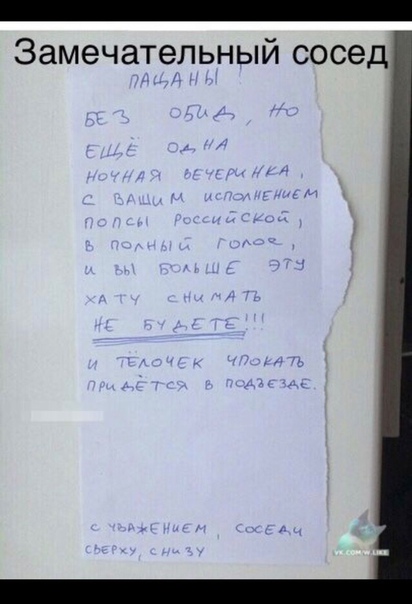 Замечательный сосед
ПАЦАНЫ !
БЕЗ ОБИД, НО
ЕЩЁ ОДНА
НОЧНАЯ ВЕЧЕРИНКА,
С ВАШИМ ИСПОЛНЕНИЕМ
ПОПСЫ РОССИЙСКОЙ,
В ПОЛНЫЙ ГОЛОС,
И ВЫ БОЛЬШЕ ЭТУ
ХАТУ СНИМАТЬ
НЕ БУДЕТЕ!!!
И ТЁЛОЧЕК ЧПОКАТЬ
ПРИДЁТСЯ В ПОДЪЕЗДЕ.
С УВАЖЕНИЕМ, СОСЕДИ
СВЕРХУ, СНИЗУ
VK.COM/W.LIKE